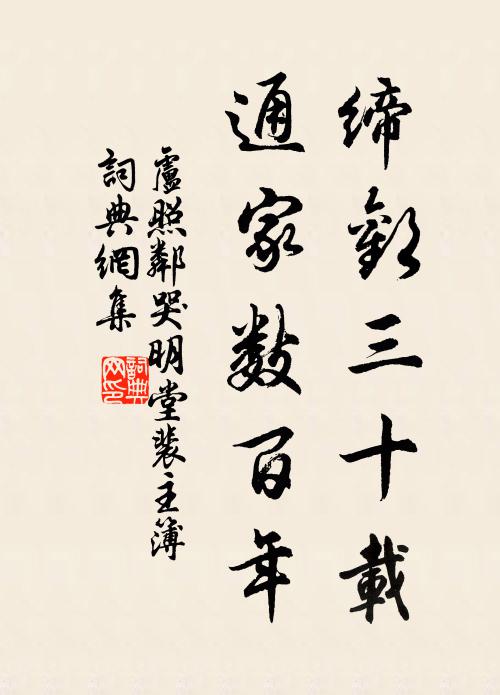 締歡三十載
通家數百年
盧照鄰哭明堂裴主簿
詞典網集
詞典網印